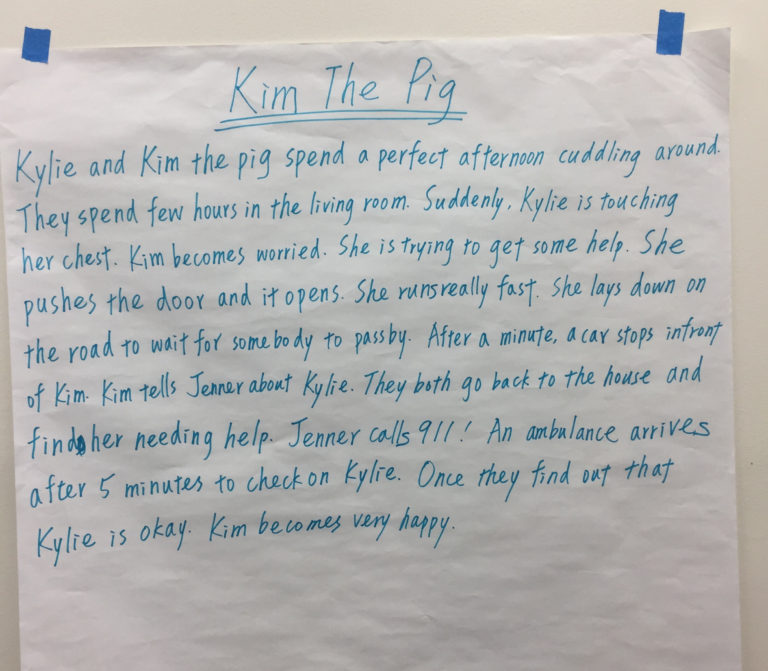 Kim The Pig
Kylie and Kim the pig spend a perfect afternoon cuddling around.
They spend few hours in the living room. Suddenly, Kylie is touching
her chest. Kim becomes worried. She is trying to get some help. She
pushes the door and it opens. She runs really fast. She lays down on
the road to wait for somebody to pass by. After a minute, a car stops infront
of Kim. Kim tells Jenner about Kylie. They both go back to the house and
find her needing help. Jenner calls 911! An ambulance arrives
after 5 minutes to check on Kylie. Once they find out that
Kylie is okay. Kim becomes very happy.